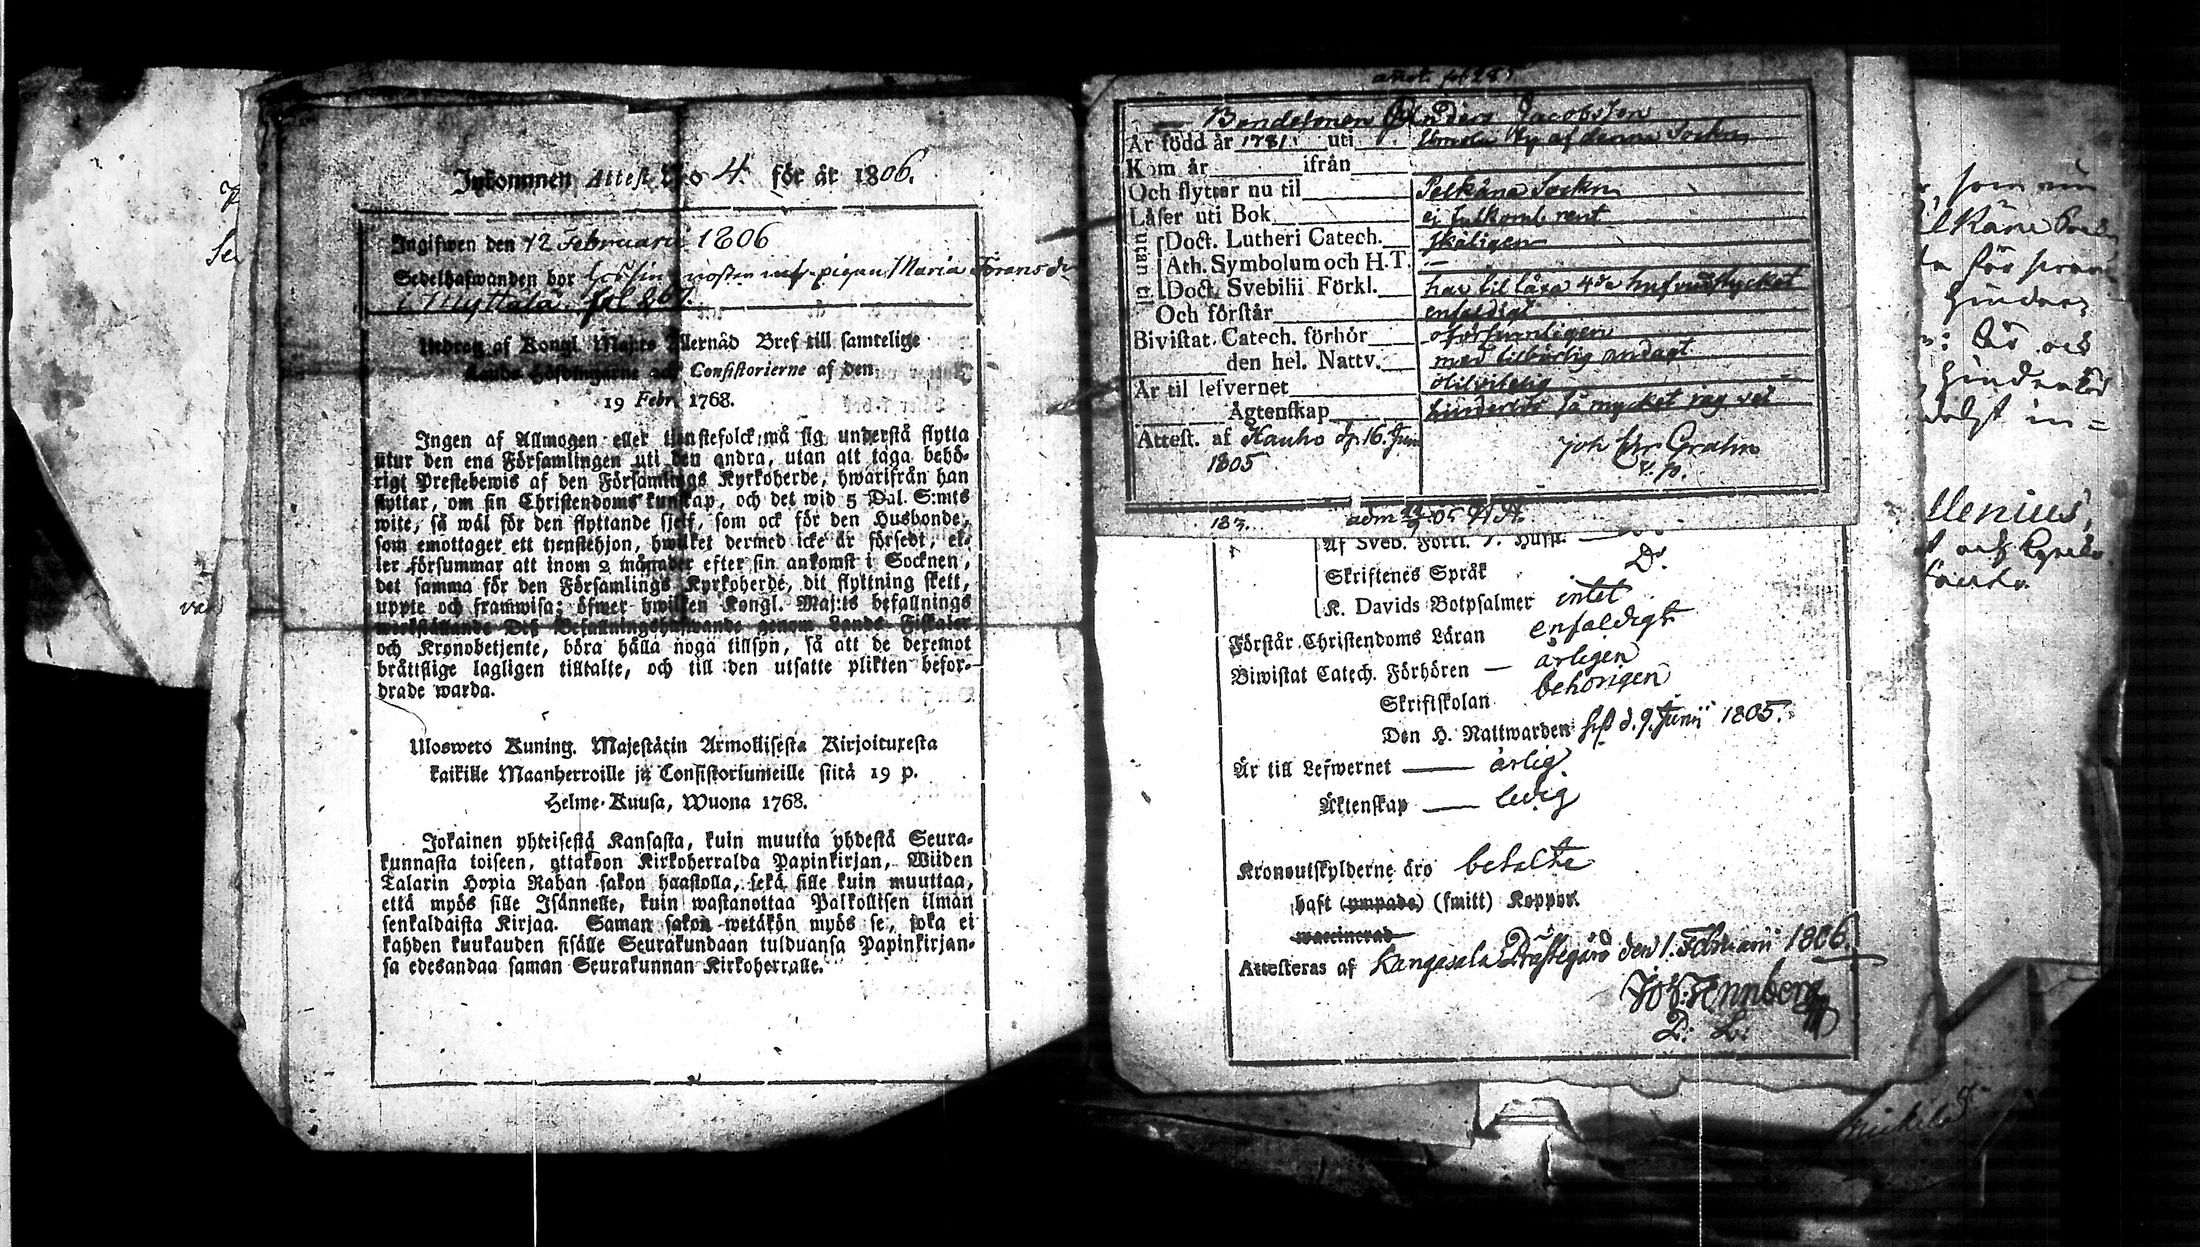 Inkommen Attest No 4. för år 1806.
Ingifwen den 12 Februarii 1806
Sedelhafwanden bor hos sin moster pigan Maria
i Myttala. fol 267.
Utdrag af Kongl. Maj:ts Allernåd Bref till samtelige
Lands Höfdingarne och Consistorierne af den
19 Febr. 1768.
Ingen af Allmogen eller tjenstefolck må sig understå flytta
utur den ena Församlingen uti den andra, utan att taga behö-
rigt Prestebewis af den Församlings Kyrkoherde, hwarifrån han
flyttar, om sin Christendoms kunskap, och det wid 5 Dal. S:mts
wite, så wäl för den flyttande sjelf, som ock för den Husbonde,
som emottager ett tjenstehjon, hwilket dermed icke är försedt, el-
ler försummar att inom 2 månader efter sin ankomst i Socknen,
det samma för den Församlings Kyrkoherde, dit flyttning skett,
uppte och framwisa; öfwer hwilken Kongl. Maj:ts befallnings
werkställande Dess Befallningshafwande genom Lands Fiskaler
och Kronobetjente, böra hålla noga tillsyn, så att de deremot
bråttslige lagligen tilltalte, och till den utsatte plikten befor-
drade warda.
Ulosweto Kuning. Majestätin Armollisesta Kirjoituxesta
kaikille Maanherroille ja Consistoriumeille siitä 19 p.
Helme-Kuusa, Wuona 1768.
Jokainen yhteisestä Kansasta, kuin muutta yhdestä Seura-
kunnasta toiseen, ottakoon Kirkoherralda Papinkirjan, Wiiden
Talarin Hopia Rahan sakon haastolla, sekä sille kuin muuttaa,
että myös sille Isännelle, kuin wastanottaa Palkollisen ilman
senkaldaista Kirjaa. Saman sakon wetäkön myös se, joka ei
kahden kuukauden sisälle Seurakundaan tulduansa Papinkirjan-
sa edesandaa saman Seurakunnan Kirkoherralle.
annot. fol 281
Bondesonen Anders Jacobsson
Är född år 1781. uti Ummola by af denna Sockn
Kom år ifrån
Och flyttar nu til Pelkäne Sockn
Läser uti Bok ej fulkoml. rent
utan til
Doct. Lutheri Catech. skäligen
Ath. Symbolum och H.T. —
Doct. Svebilii Förkl. har til lära 4de hufvudstycket
Och förstår enfaldigt
Bivistat Catech. förhör oförsumligen
den hel. Nattv. med tilbörlig andagt
Är til lefvernet otilvitelig
Ägtenskap hinderlös så mycket jag vet
Attest. af Kauho d. 16. Juni
1805
Joh Chr Grahn
v. p.
183.
Af Sveb. Förkl. 7. Hufst.
Skriftenes Språk Do.
K. Davids Botpsalmer intet
Förstår Christendoms Läran enfaldigt
Biwistat Catech. Förhören — årligen
Skriftskolan behörigen
Den H. Nattwarden sist d. 9. Junii 1805.
Är till Lefwernet — ärlig.
Äktenskap — ledig
Kronoutskylderne äro betalte
haft (ympade) (smitt) Koppor.
waccinerad
Attesteras af Kangasala Prästegård den 1. Februarii 1806.
P. L.
som nu
för
hinder
och
hinder
in=
llenius,
och